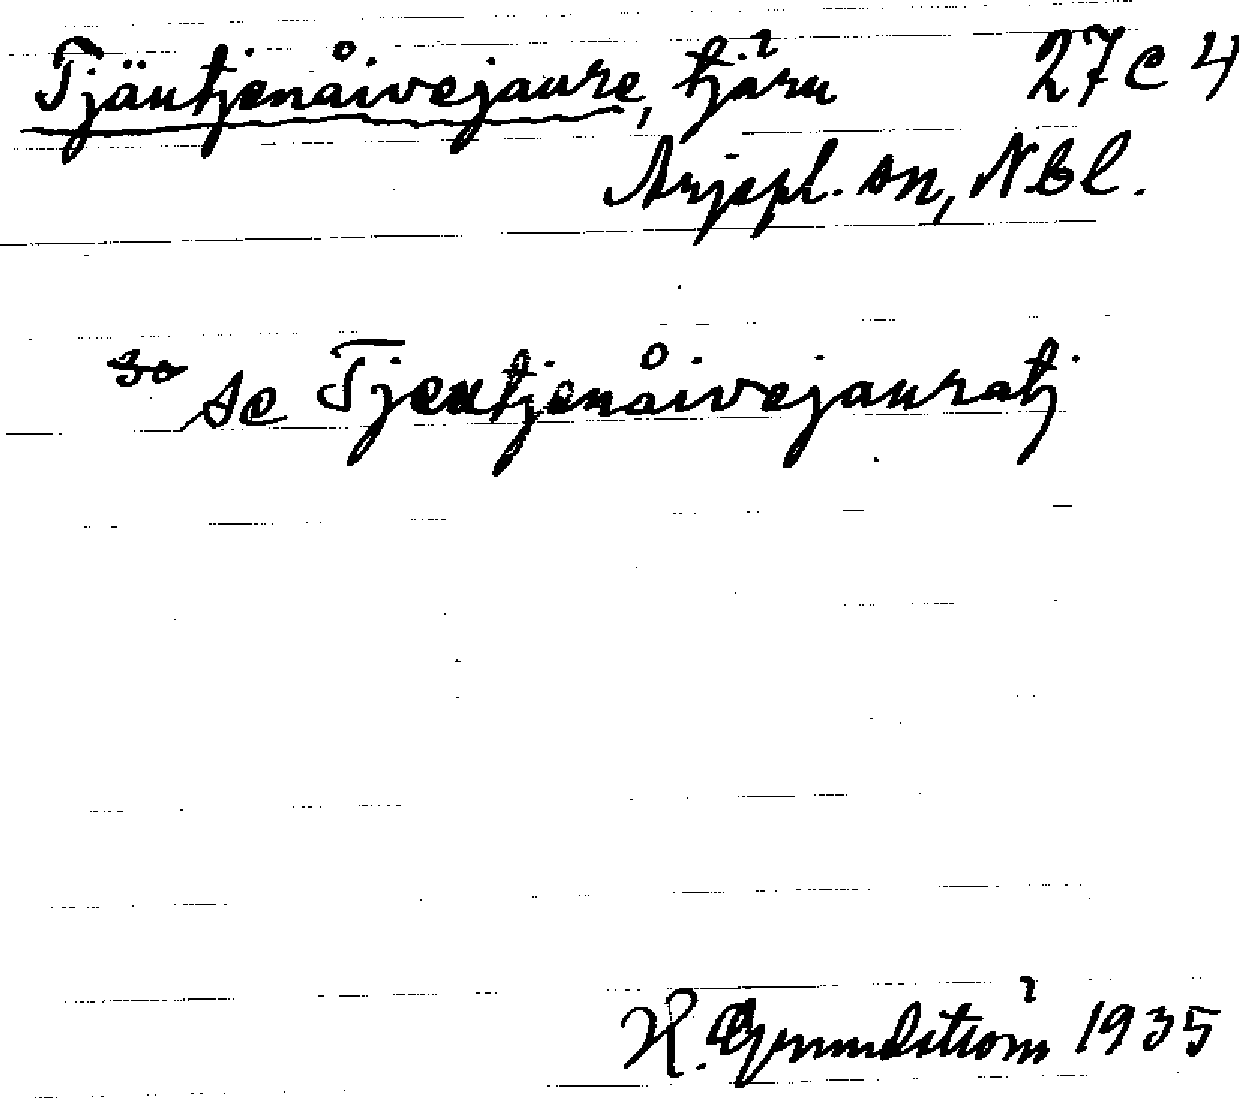 Tjäutjenåivejaure, tjärn 27 C 4
Arjepl. sn, Nbl.
se Tjeutjenåivejauratj
H. Grundström 1935